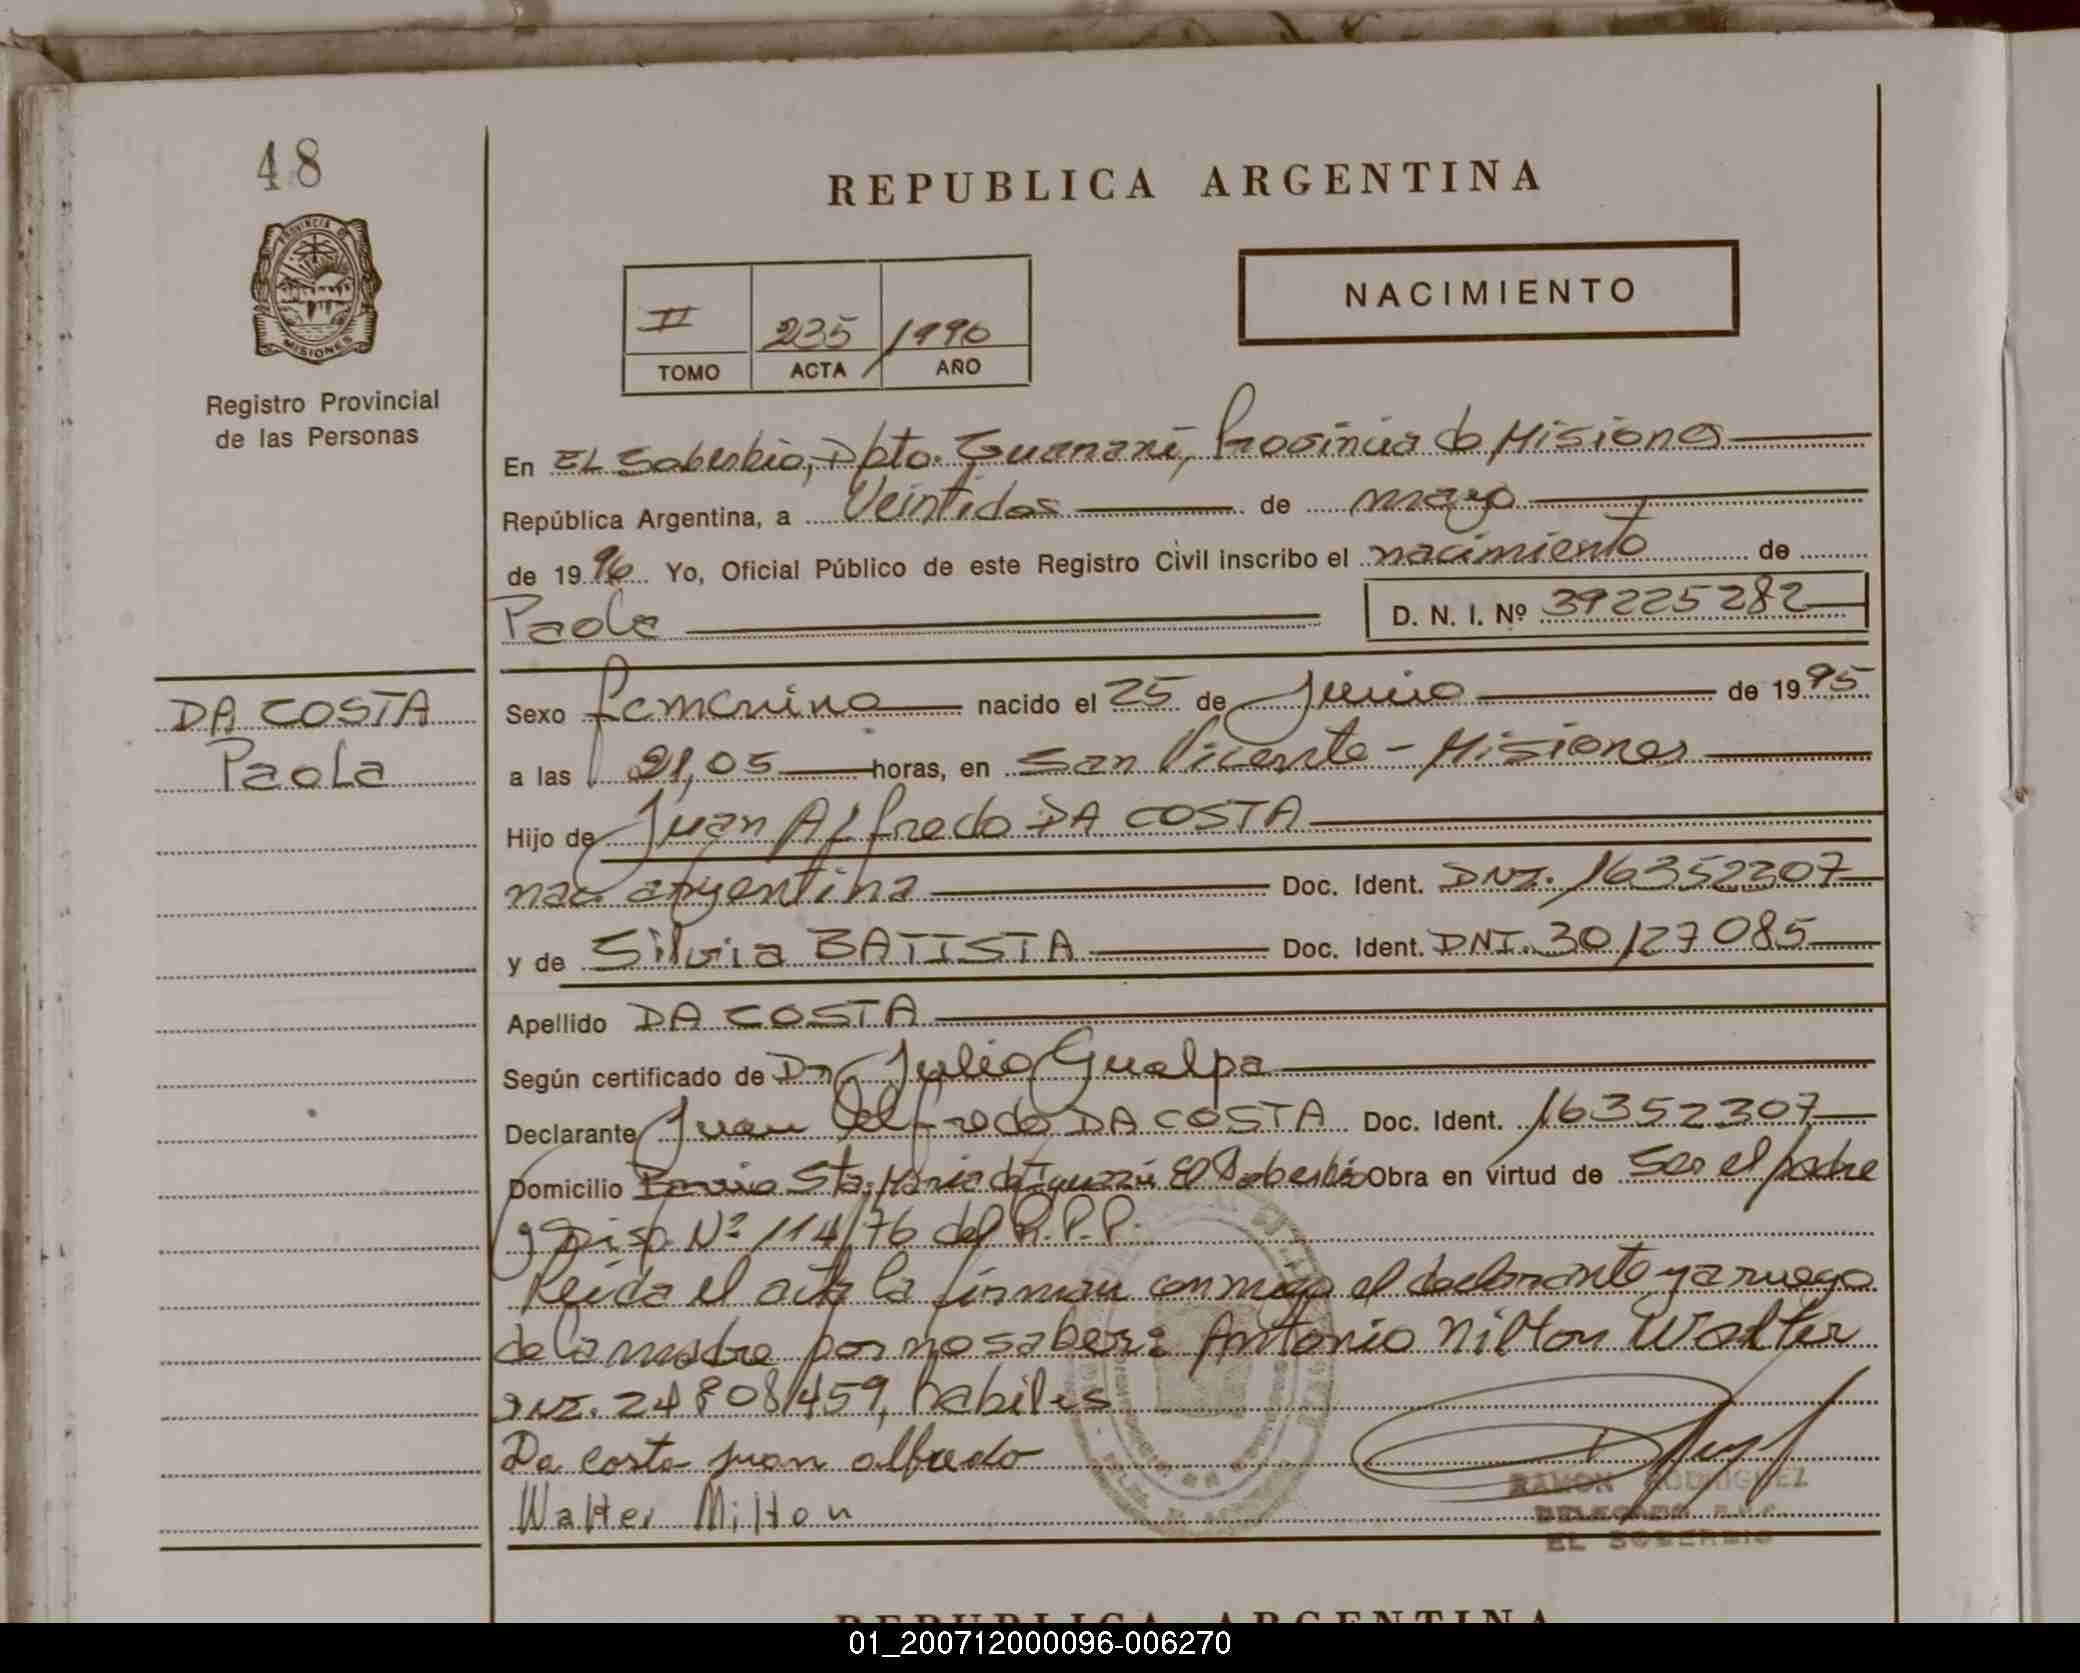 48
REPUBLICA ARGENTINA
PROVINCIA D
MISIONES
NACIMIENTO
II 235 1996
TOMO ACTA AÑO
Registro Provincial
de las Personas
En EL Soberbio, Dpto. Guarani, Provincia de Misiones
República Argentina, a Veintidos de mayo
de 1996 Yo, Oficial Público de este Registro Civil inscribo el nacimiento de
Paola D. N. I. Nº 39225282
DA COSTA
Paola
Sexo femenino nacido el 25 de Junio de 1995
a las 21,05 horas, en San Vicente - Misiones
Hijo de Juan Alfredo DA COSTA
nac. argentina Doc. Ident. DNI. 16352307
y de Silvia BATISTA Doc. Ident. DNI. 30127085
Apellido DA COSTA
Según certificado de Dr Julio Gualpa
Declarante Juan Alfredo DA COSTA Doc. Ident. 16352307
Domicilio Barrio Sta. Maria de Iguazú El Soberbio Obra en virtud de Ser el padre
y Disp. Nº 114/76 del R.P.P.
Leida el acta la firman conmigo el declarante y a ruego
de la madre por no saber: Antonio Nilton Walter
DNI. 24808459, habiles
Da costa juan alfredo
Walter Milton
RAMON RODRIGUEZ
DELEGADO R.P.P.
EL SOBERBIO
REPUBLICA ARGENTINA
01_200712000096-006270